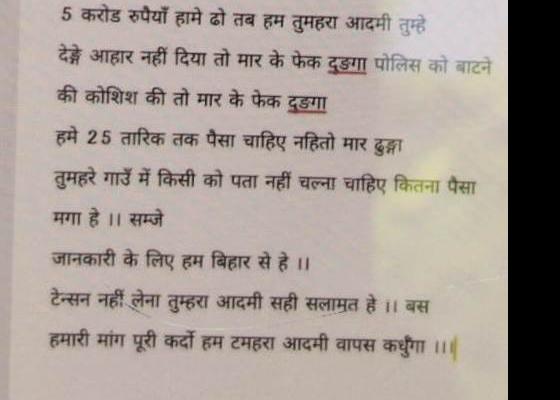 5 करोड रुपैयाँ हामे ढो तब हम तुमहरा आदमी तुम्हे
देङ्गे आहार नहीं दिया तो मार के फेक दुङगा पोलिस को बाटने
की कोशिश की तो मार के फेक दुङगा
हमे 25 तारिक तक पैसा चाहिए नहितो मार ढुङ्गा
तुमहरे गाउँ में किसी को पता नहीं चल्ना चाहिए कितना पैसा
मगा हे ।। सम्जे
जानकारी के लिए हम बिहार से हे ।।
टेन्सन नहीं लेना तुम्हरा आदमी सही सलामत हे ।। बस
हमारी मांग पूरी कर्दो हम टमहरा आदमी वापस कर्धुँगा ।।।